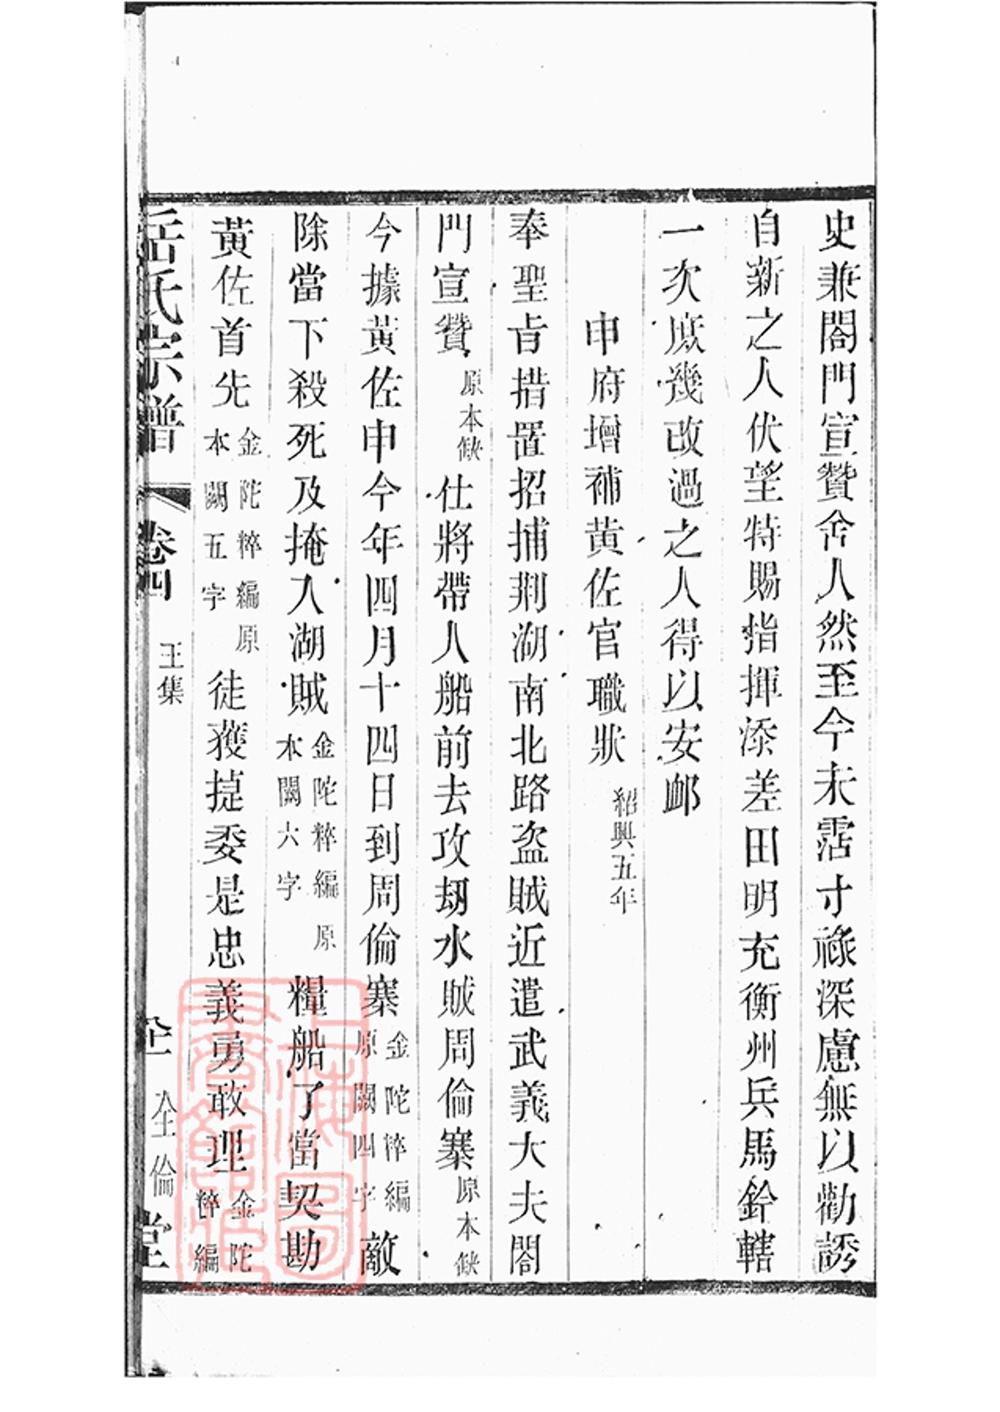 史兼閤門宣贊舍人然至今未霑寸祿深慮無以勸誘
自新之人伏望特賜指揮添差田明充衡州兵馬鈐轄
一次庶幾改過之人得以安邮
申府增補黃佐官職狀 紹興五年
奉聖旨措置招捕荆湖南北路盜賊近遣武義大夫閤
門宣贊 原本缺 仕將帶人船前去攻刼水賊周倫寨 原本缺
今據黃佐申今年四月十四日到周倫寨 金陀稡編原闕四字 敵
除當下殺死及掩入湖賊 金陀稡編原本闕六字 糧船了當契勘
黃佐首先 金陀稡編原本闕五字 徒獲捷委是忠義勇敢理 金陀稡編
岳氏宗譜 卷四 王集
上海圖書館藏